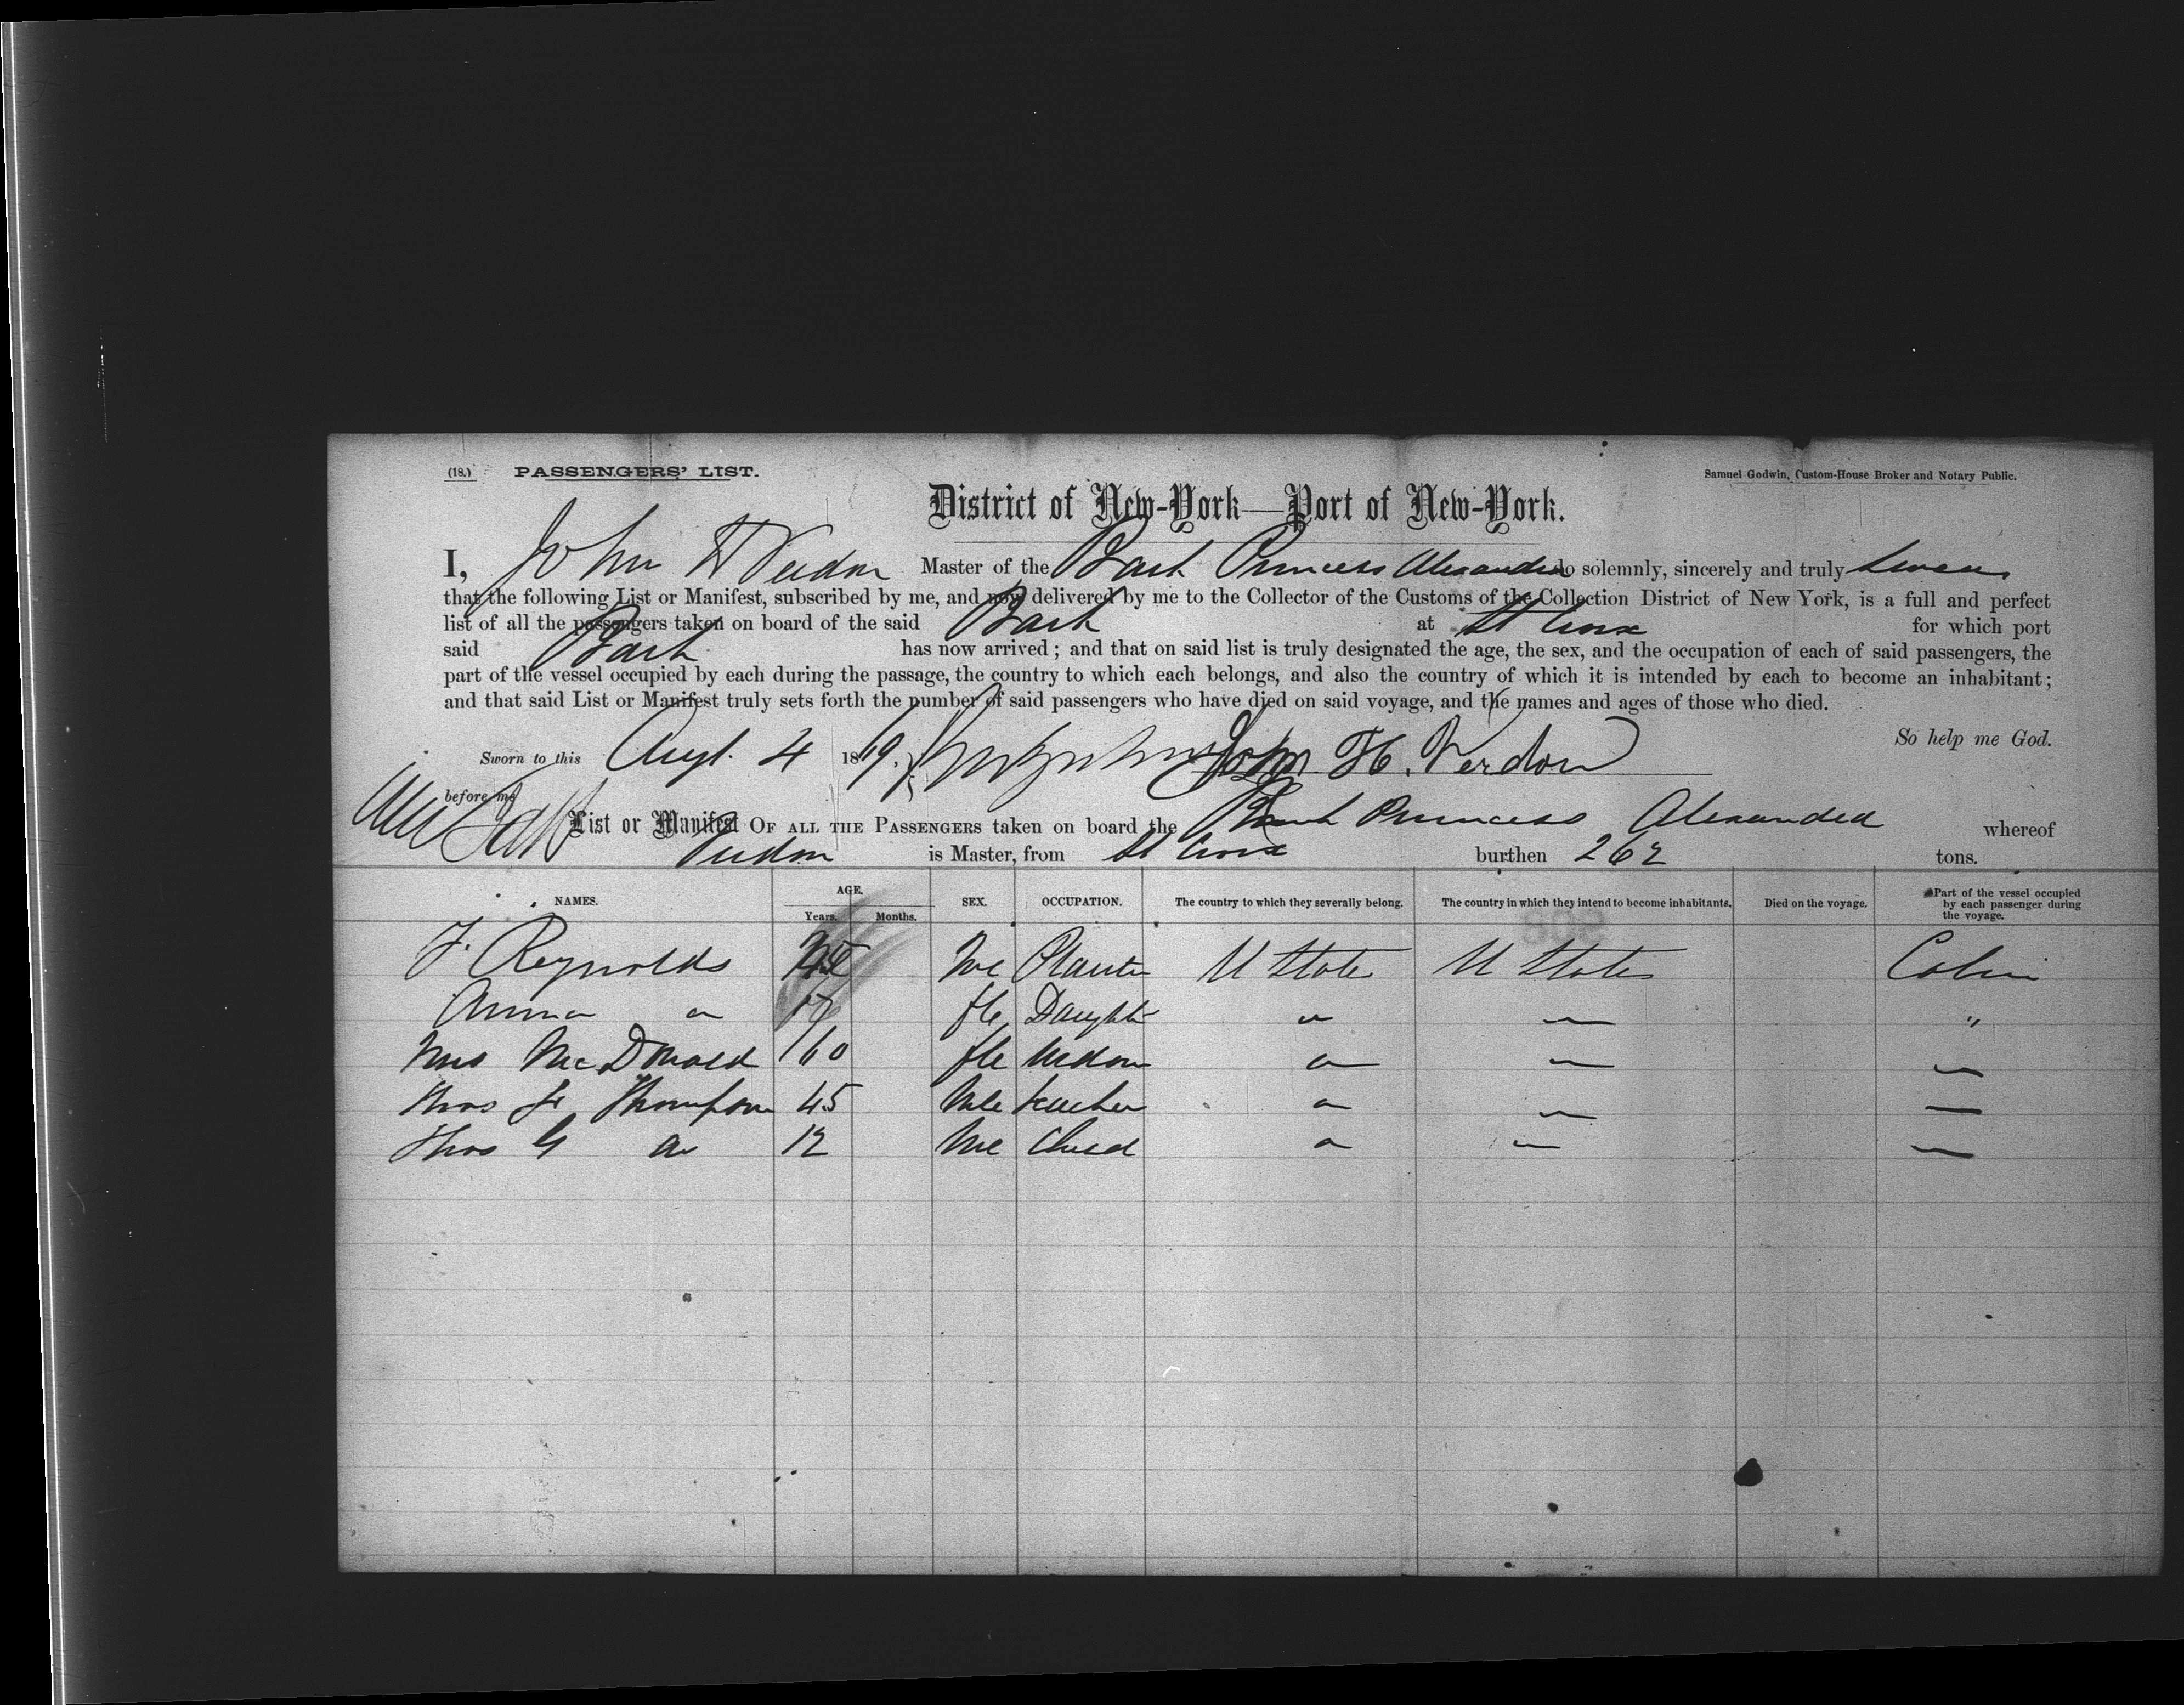 (18.) PASSENGERS' LIST. Samuel Godwin, Custom-House Broker and Notary Public.
District of New-York—Port of New-York.
I, John H Verdon Master of the Bark Princess Alexandra do solemnly, sincerely and truly swear
that the following List or Manifest, subscribed by me, and now delivered by me to the Collector of the Customs of the Collection District of New York, is a full and perfect
list of all the passengers taken on board of the said Bark at St Croix for which port
said Bark has now arrived; and that on said list is truly designated the age, the sex, and the occupation of each of said passengers, the
part of the vessel occupied by each during the passage, the country to which each belongs, and also the country of which it is intended by each to become an inhabitant;
and that said List or Manifest truly sets forth the number of said passengers who have died on said voyage, and the names and ages of those who died.
So help me God.
Sworn to this Augt. 4 1869, John H. Verdon
before me
List or Manifest OF ALL THE PASSENGERS taken on board the Bark Princess Alexandra whereof
Verdon is Master, from St Croix burthen 262 tons.
NAMES. AGE. Years. Months. SEX. OCCUPATION. The country to which they severally belong. The country in which they intend to become inhabitants. Died on the voyage. Part of the vessel occupied by each passenger during the voyage.
J. Reynolds 45 Me Planter U States U States Cabin
Anna " 17 fle Daughtr " " "
Mrs McDonald 60 fle Widow " " "
Thos F Thompson 45 Mle teacher " " "
Thos G " 12 Me Child " " "